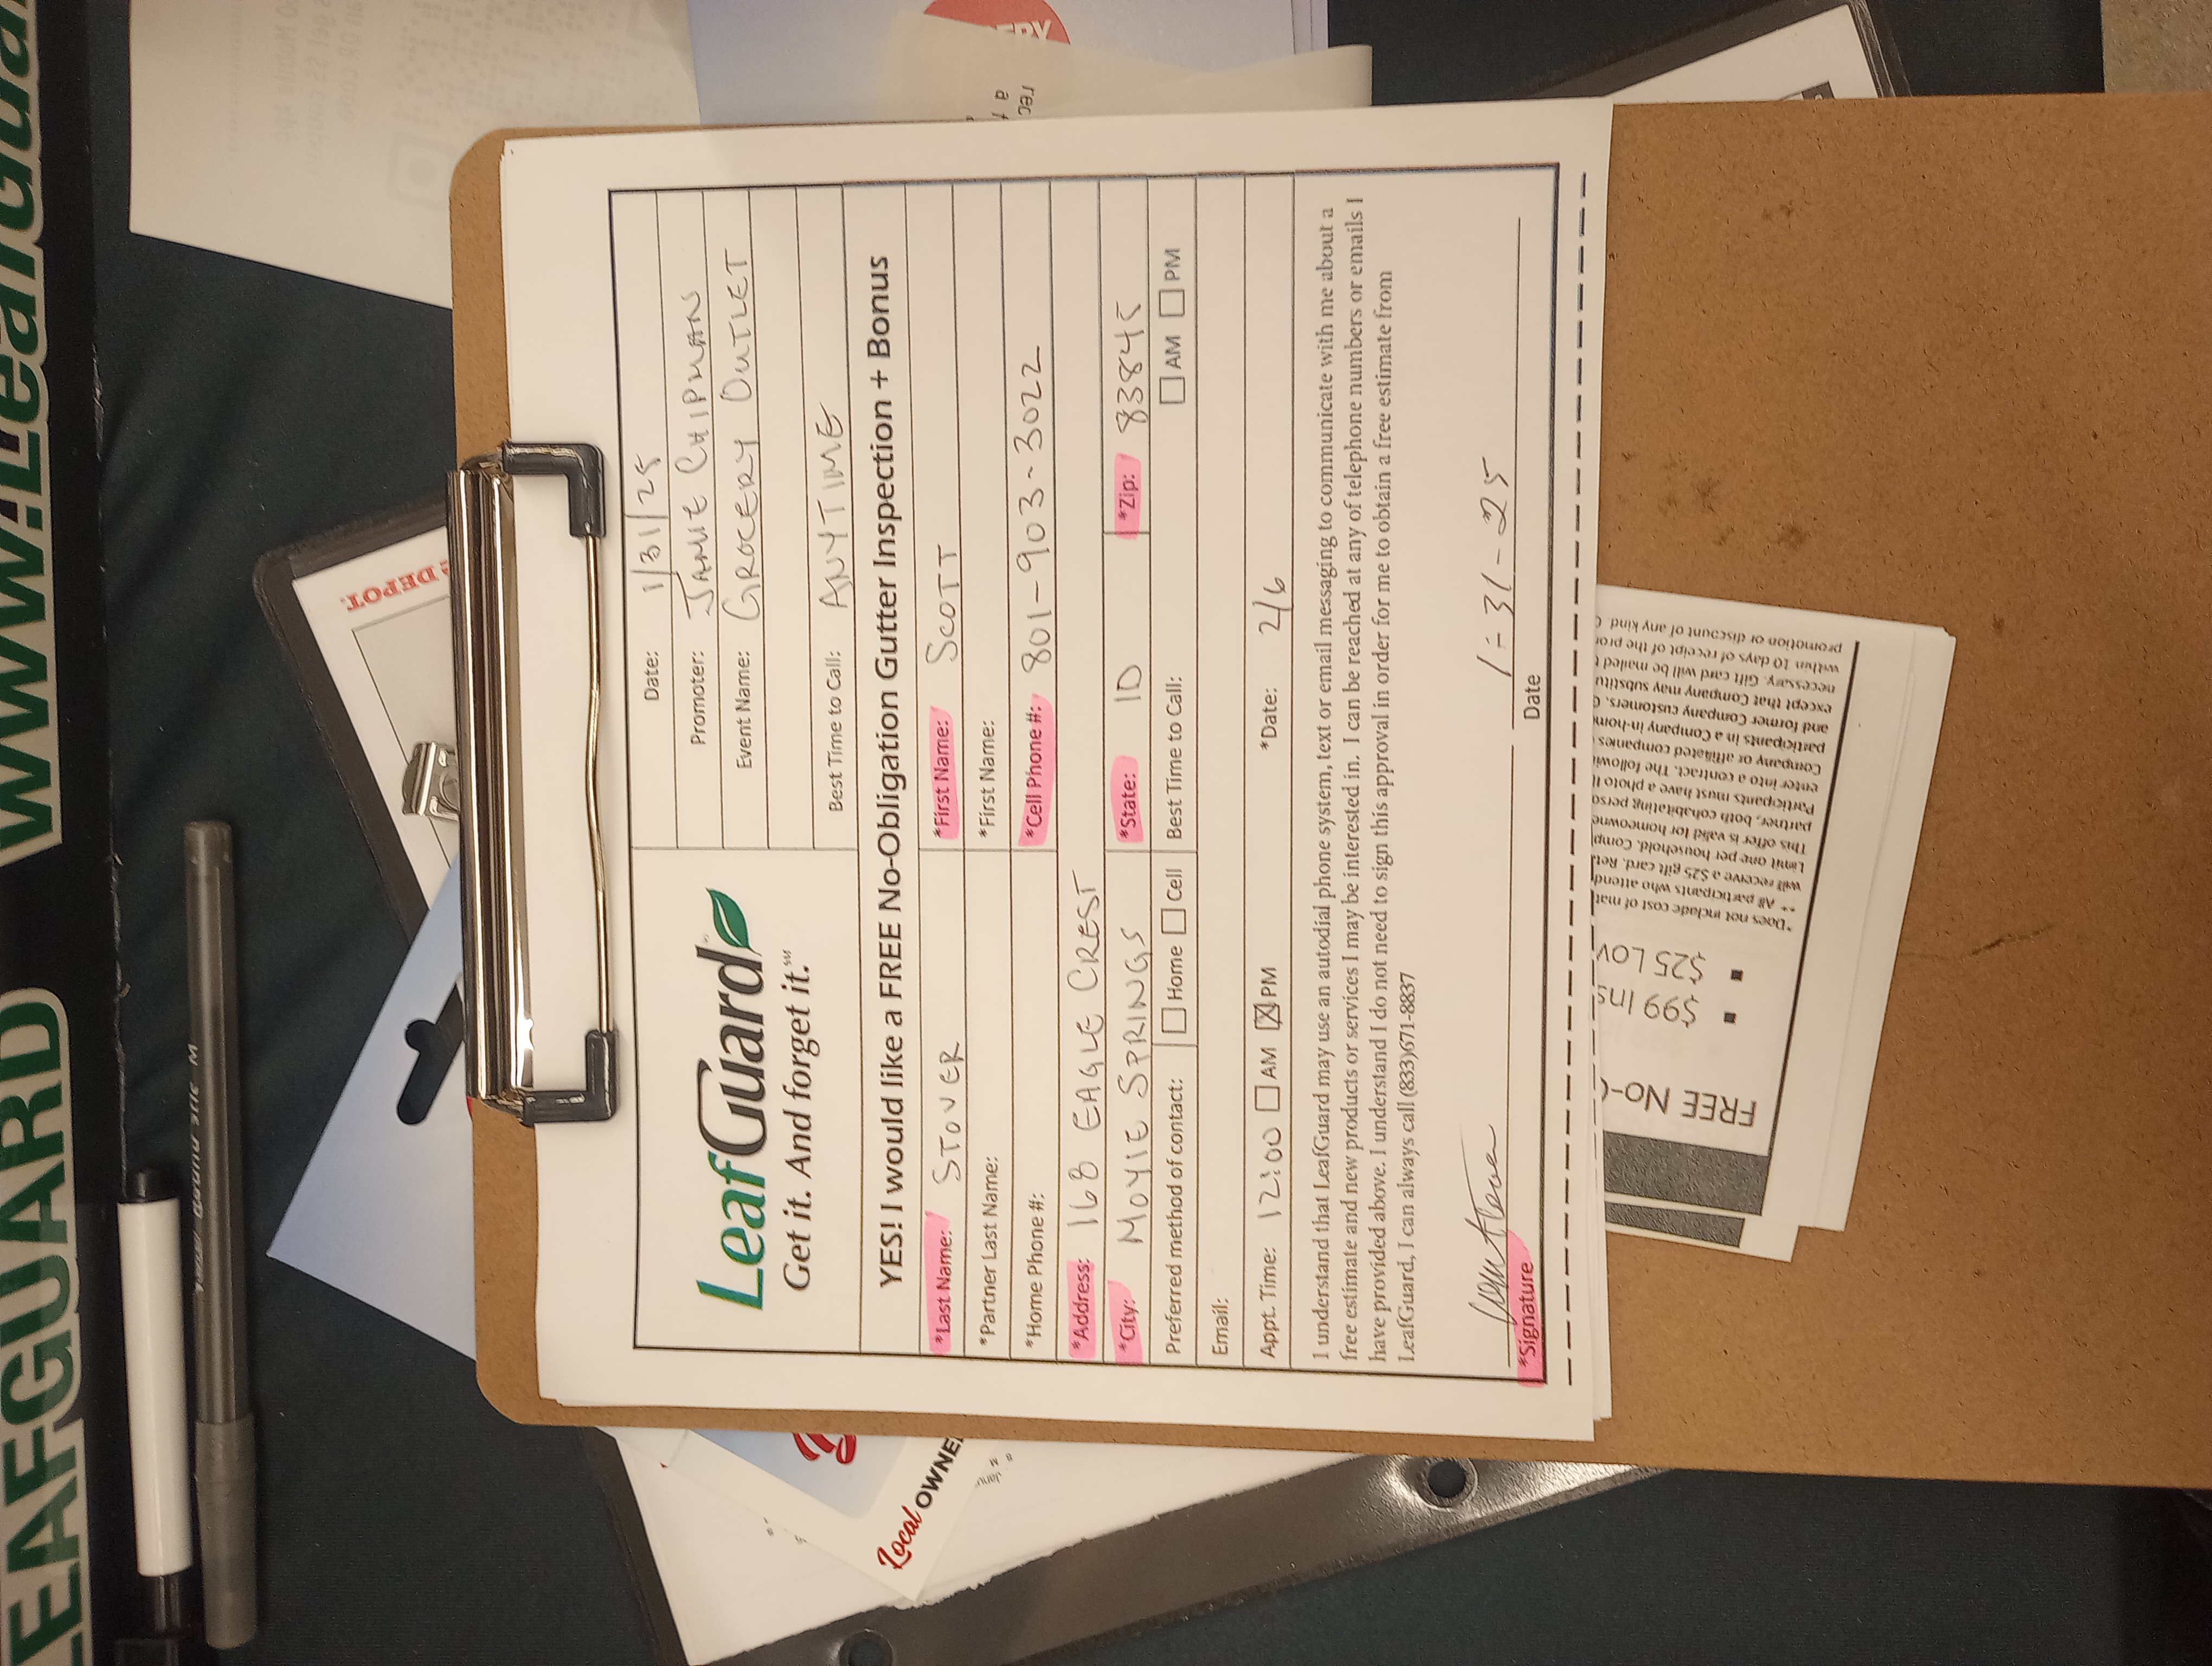 LEAFGUARD
WWW.LeafGua
Round Stic M
DEPOT.
Date: 1/31/25
Promoter: JAMIE CHIPMAN
Event Name: GROCERY OUTLET
Best Time to Call: ANYTIME
LeafGuard
Get it. And forget it.℠
YES! I would like a FREE No-Obligation Gutter Inspection + Bonus
*Last Name: STOVER *First Name: SCOTT
*Partner Last Name: *First Name:
*Home Phone #: *Cell Phone #: 801-903-3022
*Address: 168 EAGLE CREST
*City: MOYIE SPRINGS *State: ID *Zip: 83845
Preferred method of contact: Home Cell Best Time to Call: AM PM
Email:
Appt. Time: 12:00 AM PM *Date: 2/6
I understand that LeafGuard may use an autodial phone system, text or email messaging to communicate with me about a
free estimate and new products or services I may be interested in. I can be reached at any of telephone numbers or emails I
have provided above. I understand I do not need to sign this approval in order for me to obtain a free estimate from
LeafGuard, I can always call (833)671-8837
1-31-25
*Signature Date
Local OWNE
FREE No-
$99 Ins
$25 Lov
*Does not include cost of mat
** All participants who attend
will receive a $25 gift card. Reta
Limit one per household. Comp
This offer is valid for homeowne
partner, both cohabitating perso
Participants must have a photo I
enter into a contract. The followi
Company or affiliated companies
participants in a Company in-hom
and former Company customers.
except that Company may substitu
necessary. Gift card will be mailed t
within 10 days of receipt of the pror
promotion or discount of any kind.